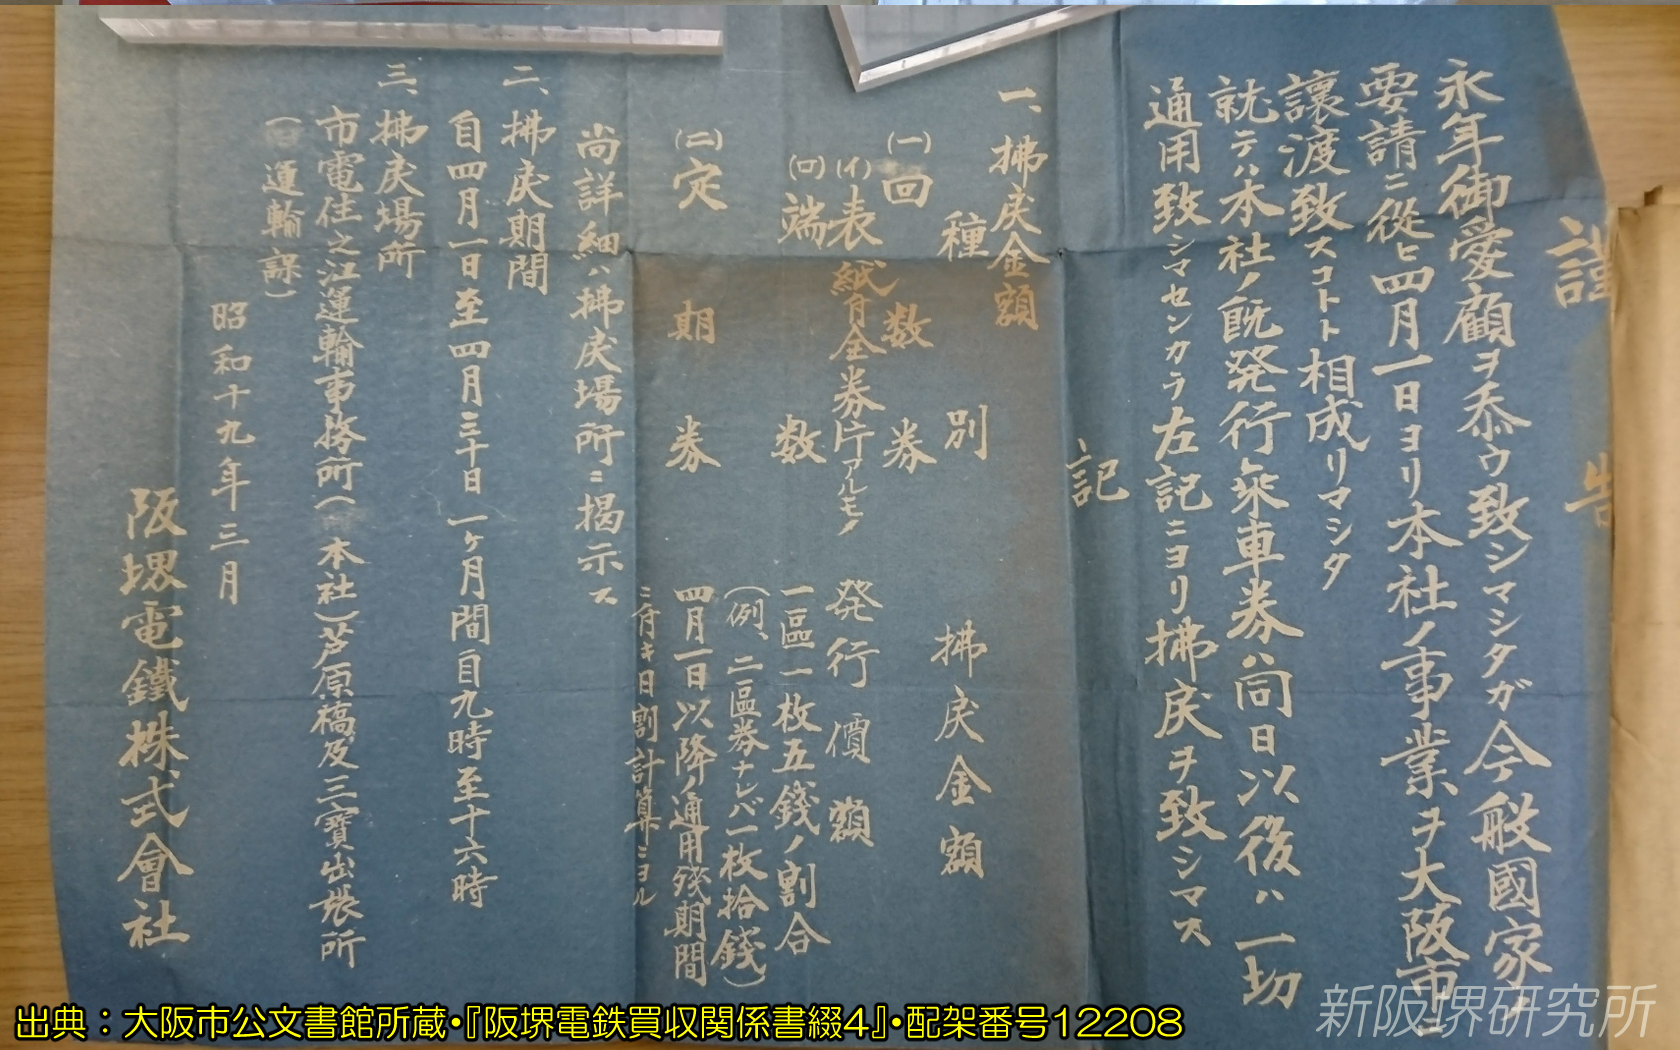 謹告
永年御愛顧ヲ忝ウ致シマシタガ今般國家ノ
要請ニ從ヒ四月一日ヨリ本社ノ事業ヲ大阪市ニ
讓渡致スコトト相成リマシタ
就テハ本社ノ既発行乘車券ハ同日以後ハ一切
通用致シマセンカラ左記ニヨリ拂戻ヲ致シマス
記
一、拂戻金額
種別 拂戻金額
(一)回数券
(イ)表紙有全券片アルモノ 発行價額
(ロ)端数 一區一枚五錢ノ割合
(例、二區券ナレバ一枚拾錢)
(二)定期券 四月一日以降ノ通用残期間
ニ付キ日割計算ニヨル
尚詳細ハ拂戻場所ニ揭示ス
二、拂戻期間
自四月一日至四月三十日一ヶ月間自九時至十六時
三、拂戻場所
市電住之江運輸事務所(本社)芦原橋及三寶出張所
(運輸課)
昭和十九年三月
阪堺電鐵株式會社
出典：大阪市公文書館所蔵・『阪堺電鉄買収関係書綴4』・配架番号12208
新阪堺研究所